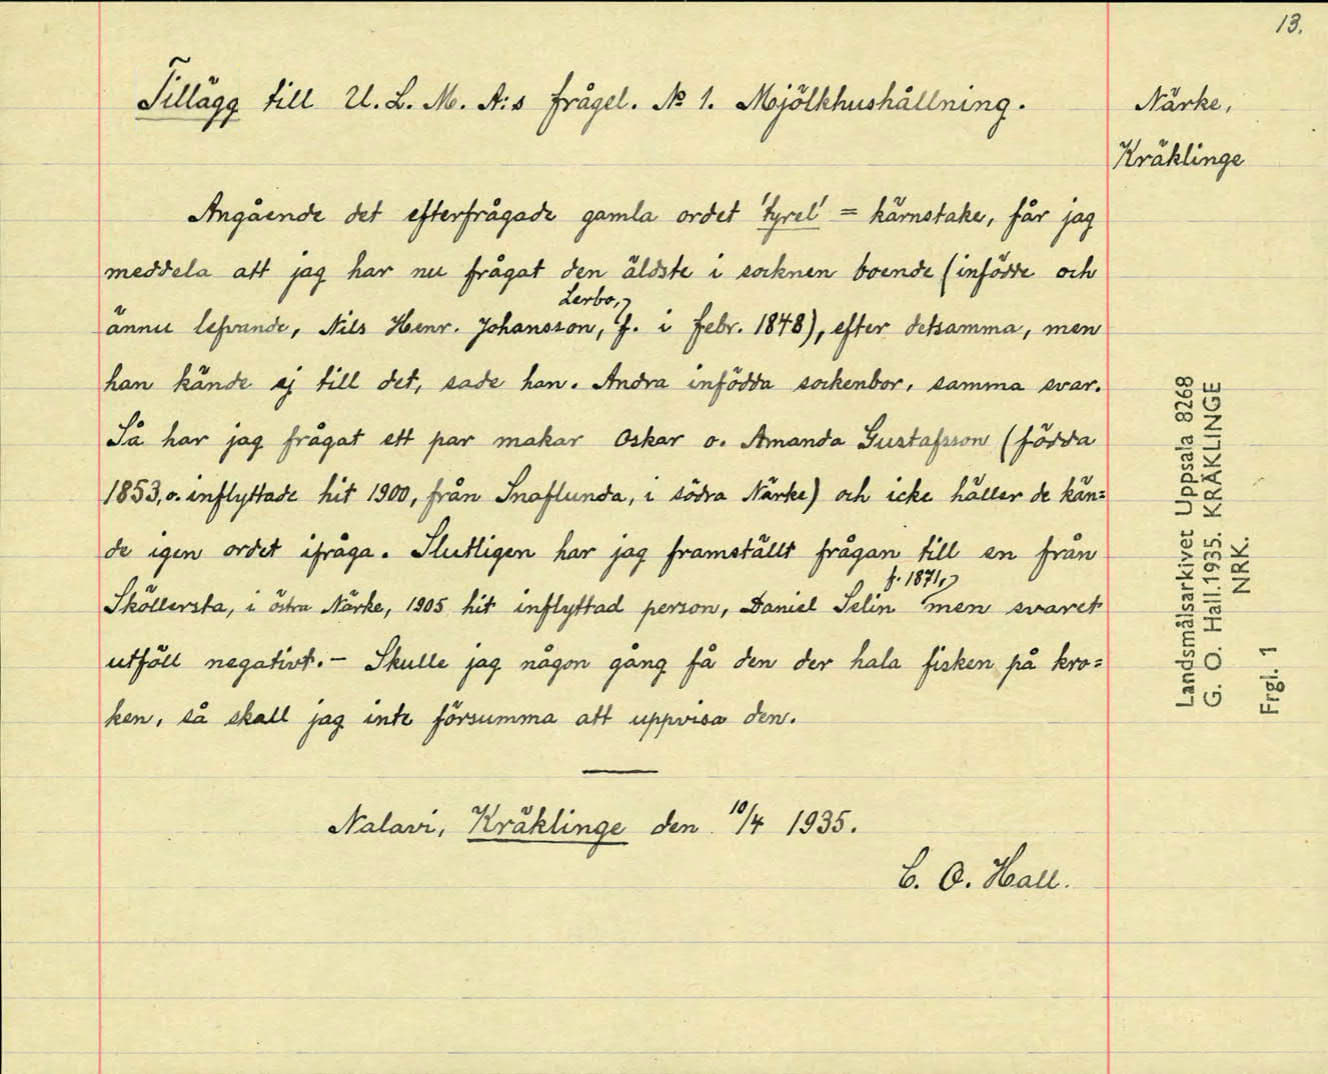 13.
Tillägg till U.L.M.A:s frågel. № 1. Mjölkhushållning.
Närke,
Kräklinge
Angående det efterfrågade gamla ordet 'tyrel' = kärnstake, får jag
meddela att jag har nu frågat den äldste i socknen boende (infödde och
ännu lefvande, Nils Henr. Johansson, Lerbo, f. i febr. 1848), efter detsamma, men
han kände ej till det, sade han. Andra infödda sockenbor, samma svar.
Så har jag frågat ett par makar Oskar o. Amanda Gustafsson (födda
1853, o. inflyttade hit 1900, från Snaflunda, i södra Närke) och icke häller de kän=
de igen ordet ifråga. Slutligen har jag framställt frågan till en från
Sköllersta, i östra Närke, 1905 hit inflyttad person, Daniel Selin f. 1871, men svaret
utföll negativt. – Skulle jag någon gång få den der hala fisken på kro=
ken, så skall jag inte försumma att uppvisa den.
Nalavi, Kräklinge den 10/4 1935.
C. O. Hall.
Landsmålsarkivet Uppsala 8268
G. O. Hall. 1935. KRÄKLINGE
NRK.
Frgl. 1